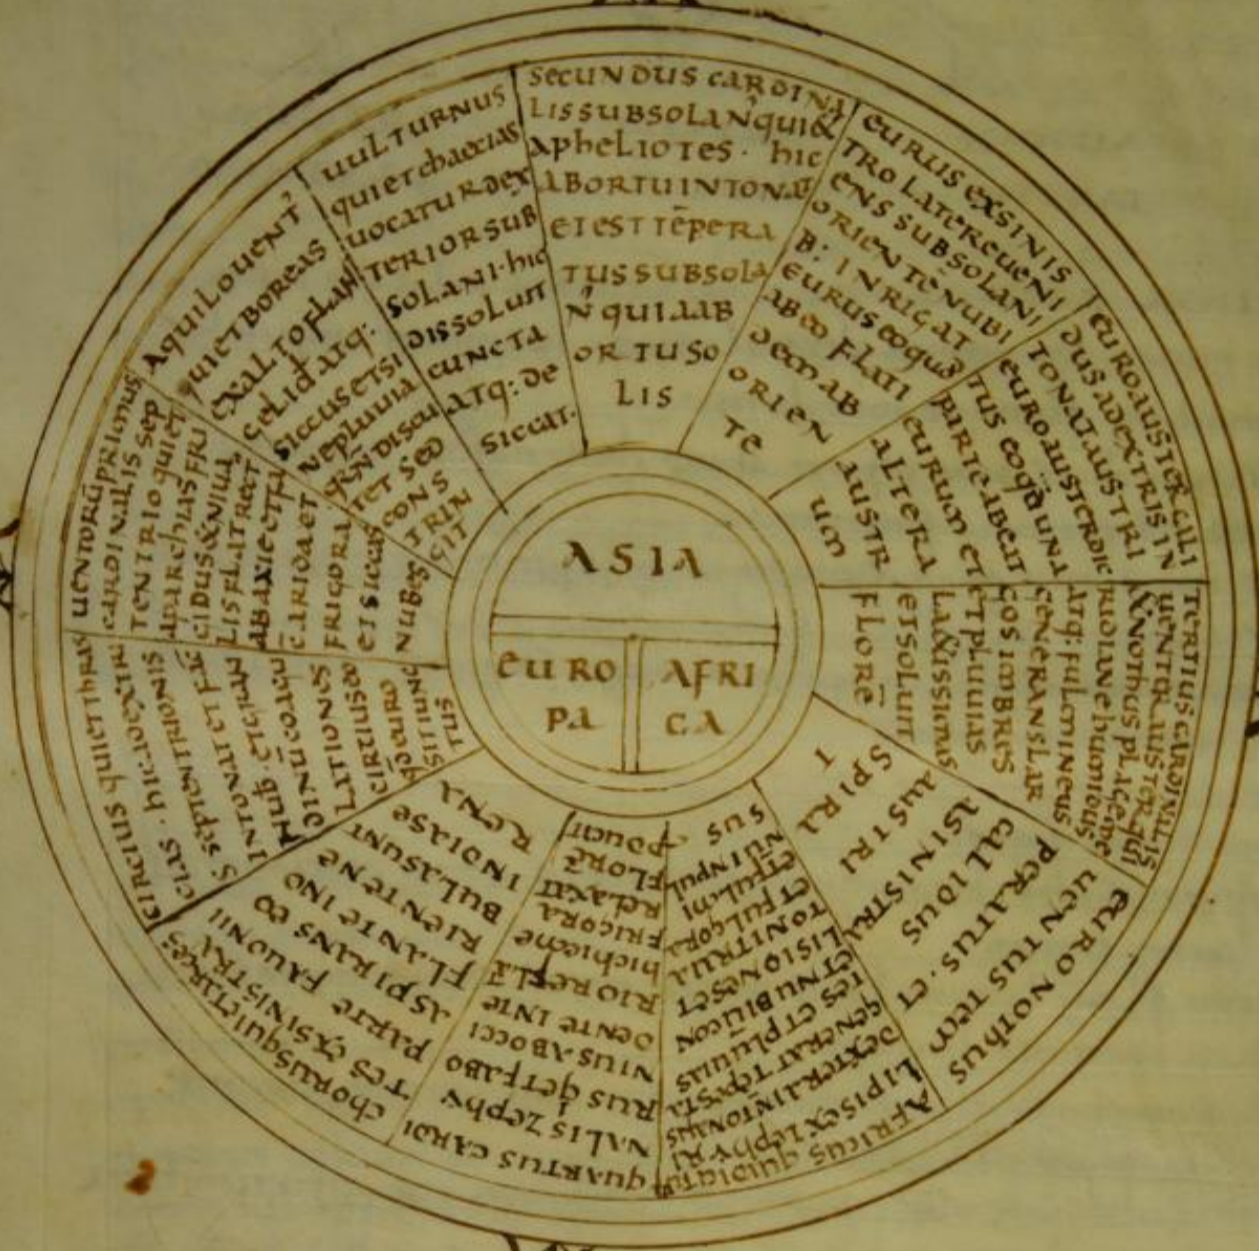 SECUNDUS CARDINA
LIS SUBSOLAN' QUI &
APHELIOTES · HIC
AB ORTU INTONAT
ET EST TĒPERA
TUS SUBSOLA
N' QUIA AB
ORTU SO
LIS
EURUS EX SINIS
TRO LATERE UENI
ENS SUBSOLANI
ORIENTĒ NUBI
B: INRIGAT
EURUS EO QUOD
AB EO FLATI
DEM AB
ORIEN
TE
EUROAUSTER CALI
DUS A DEXTRIS IN
TONAT AUSTRI
EUROAUSTER DIC
TUS EO QĐ UNA
PARTE ABEAT
EURUM ET
ALTERA
AUSTR
UM
TERTIUS CARDINALIS
UENT' AUSTER QUI
& NOTHUS PLAGAE ME
RIDIANE HUMIDUS
ATQ: FULMINEUS
GENERANS LAR
GOS IMBRES
ET PLUUIAS
LA&ISSIMAS
ET SOLUIT
FLORĒ
EURONOTHUS
UENTUS TEM
PERATUS · ET
CALIDUS
A SINISTRA
AUSTRI
SPIRA
T
AFRICUS QUI DICITUR
LIPIS EX ZEPHYRI
DEXTERA INTONANS
GENERAT TĒPESTA
TES ET PLUUIAS
ET NUBIŪ CON
LISIONES ET
TONITRUA
ET FULGORA
ET FULMI
NUINPUL
SUS
QUARTUS CARDI
NALIS ZEPHY
RUS QET FABO
NIUS AB OCCI
DENTE INTE
RIORE FLAT
HIC HIEME
FRIGORA
RELAXAT
FLORĒ
PDUCIT
CHORUS QUI ET ARGES
TES EX SINISTRA
PARTE FAUONII
ASPIRANS EO
FLANTE IN O
RIENTE NE
BULA SUNT
IN INDIA SE
RENA
CIRCIUS QUI ET THRAS
CIAS · HIC A DEXTRI
S SEPTENTRIONIS
INTONAT ET FAC
NUB̄
CIRCIUS
TUS
UENTORŪ PRIMUS
CARDINALIS SEP
TENTRIO QUI ET
APARCHIAS FRI
GIDUS & NIUA
LIS FLAT RECT
AB AXE ET FA
C̄ ARIDA ET
FRIGORA
ET SICCAS
NUBES
AQUILO UENT'
QUI ET BOREAS
EX ALTO FLAN
GELID' ATQ:
SICCUS ET SI
NE PLUUIA
QI N̄ DISCU
TET SED
CONS
TRIN
GIT
UULTURNUS
QUI ET CHAECIAS
UOCATUR DEX
TERIOR SUB
SOLANI · HIC
DISSOLUIT
CUNCTA
ATQ: DE
SICCAT ·
ASIA
EURO
PA
AFRI
CA